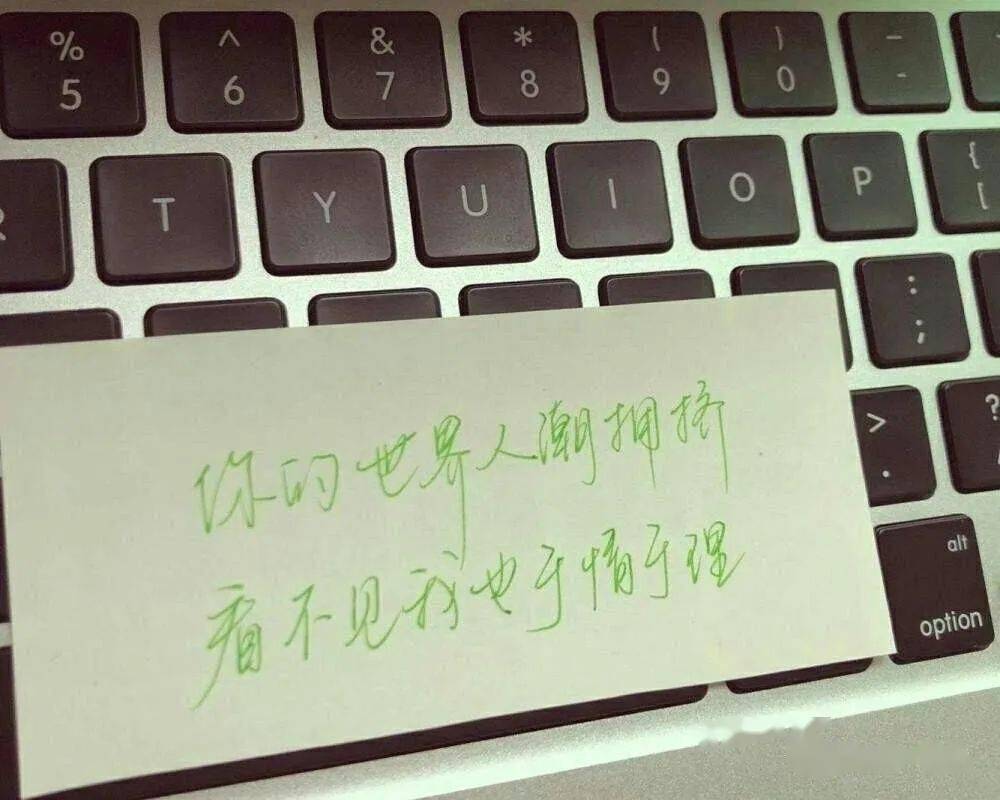 % ^ & * ( ) –
5 6 7 8 9 0 -
T Y U I O P {
[
:
;
>
.
?
alt
option
你的世界人潮拥挤
看不见我也于情于理